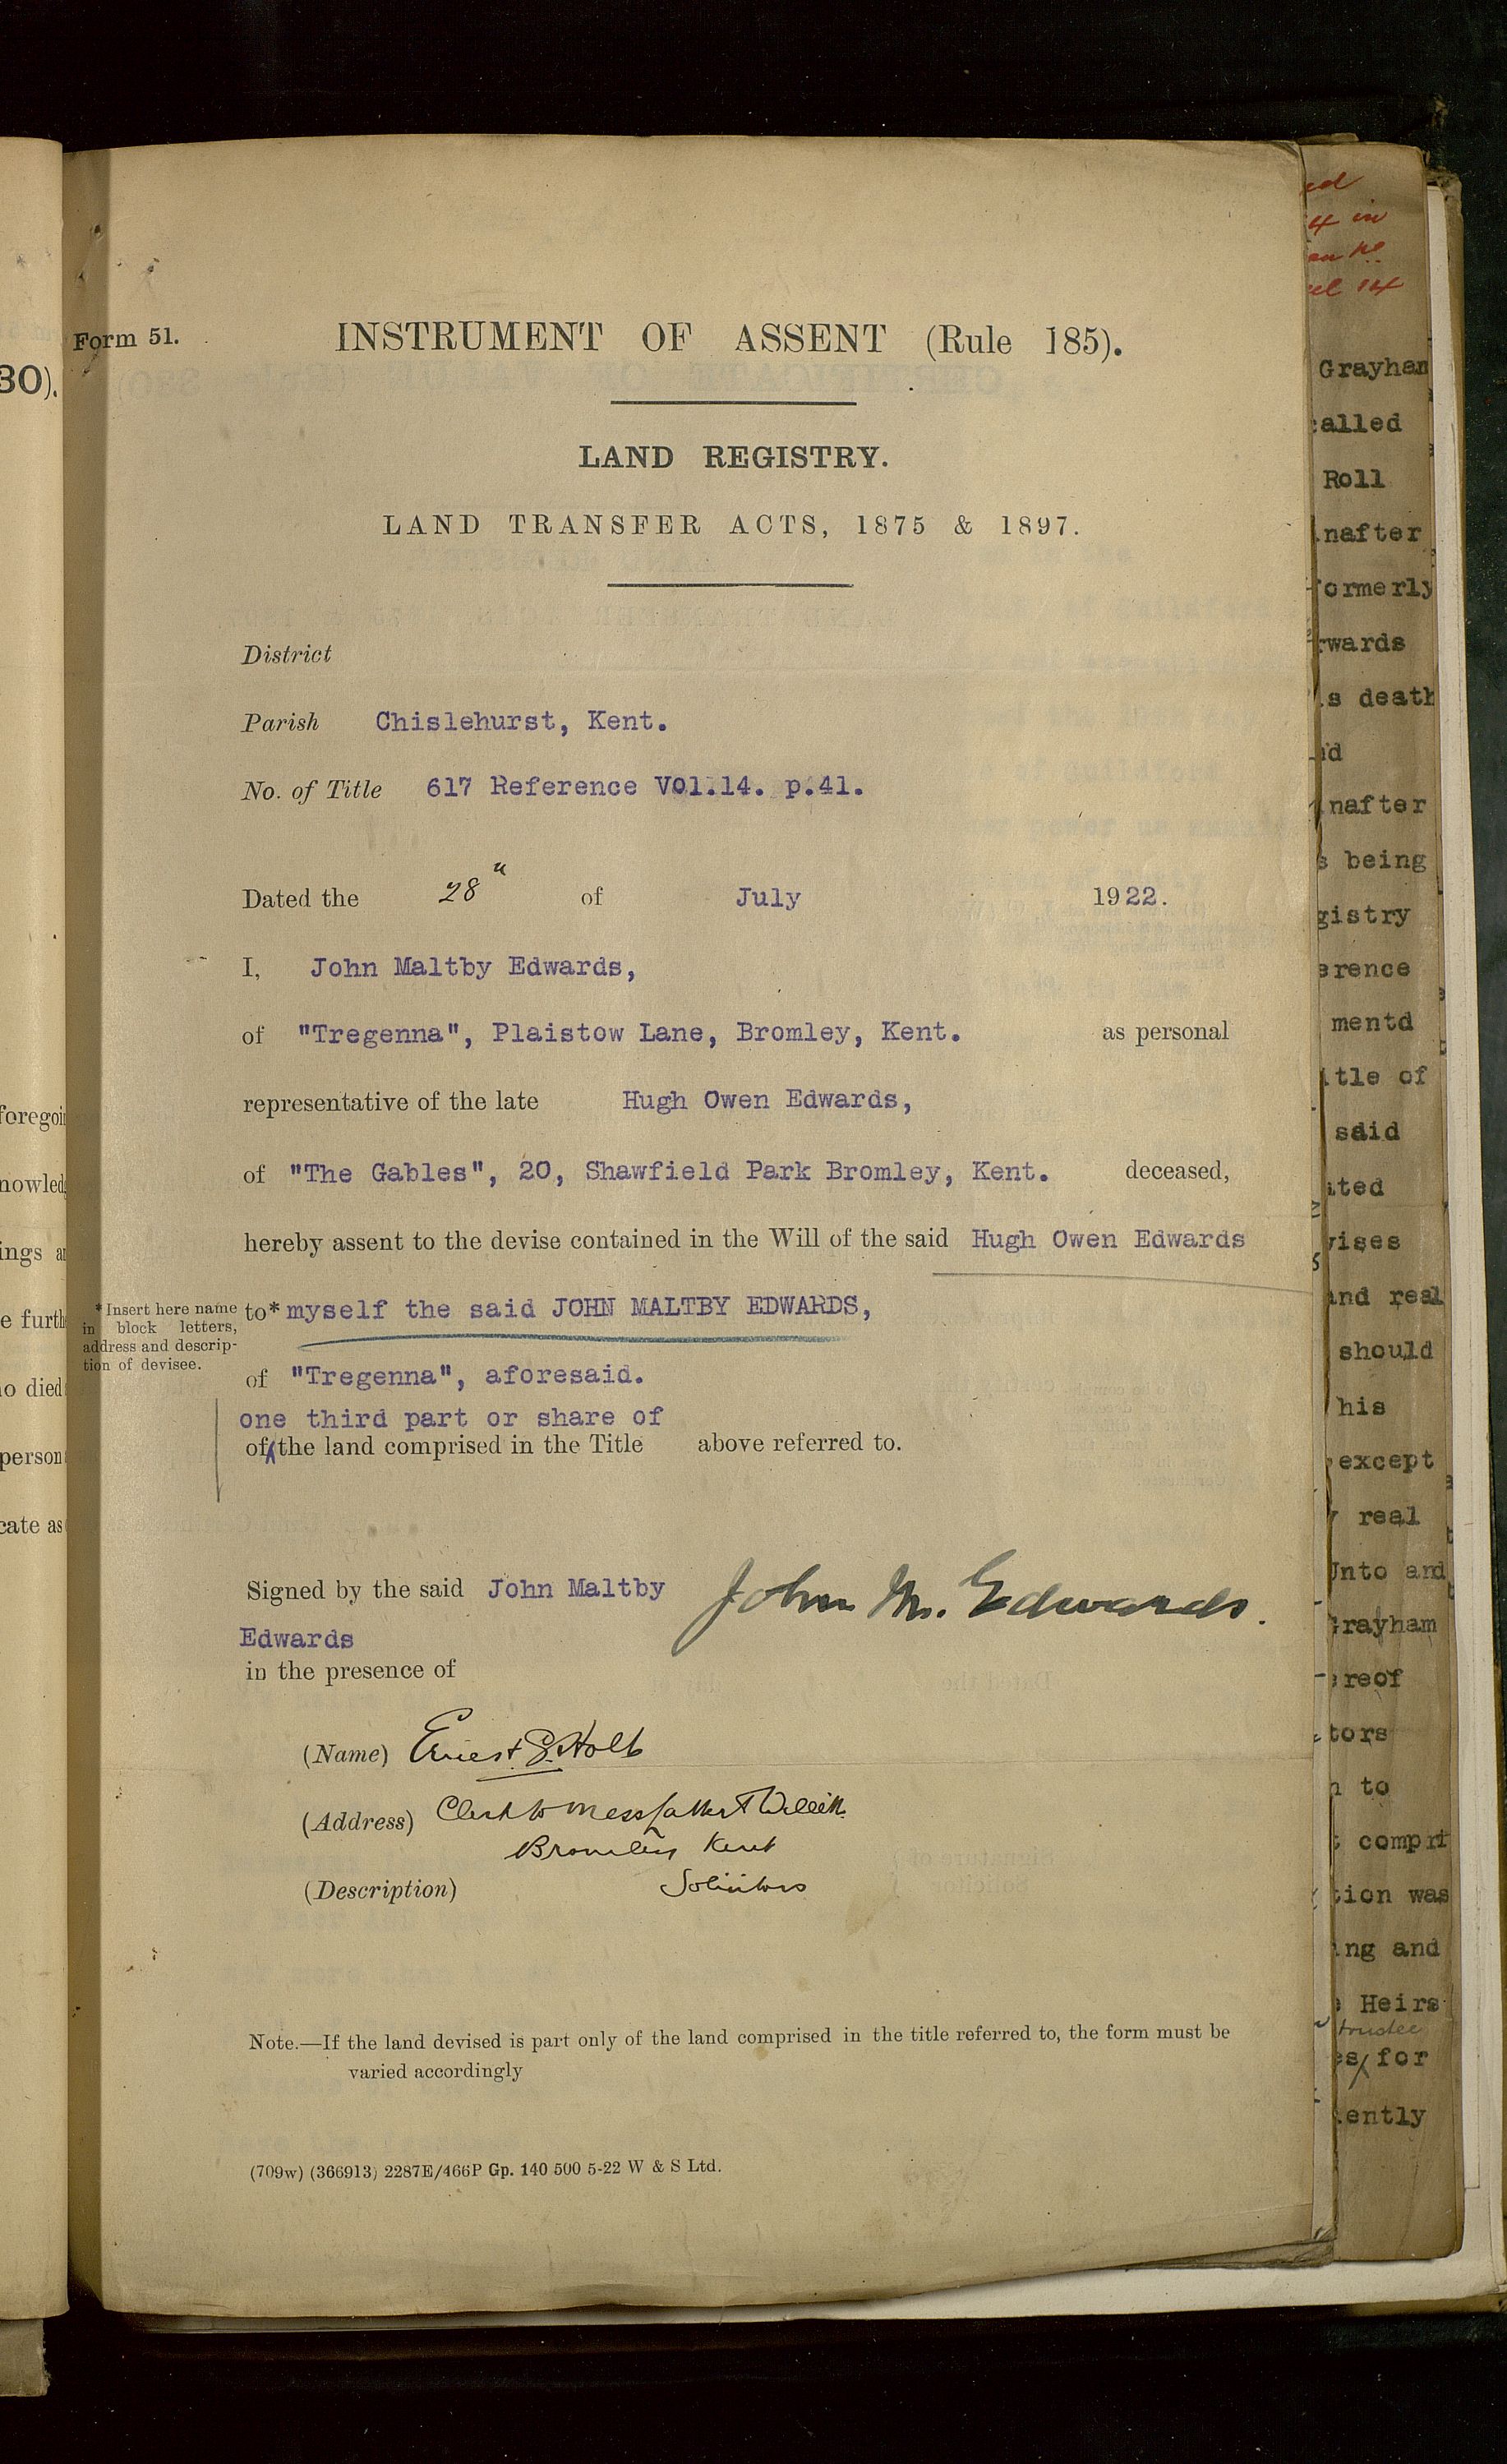 Form 51.
INSTRUMENT OF ASSENT (Rule 185).
LAND REGISTRY.
LAND TRANSFER ACTS, 1875 & 1897.
District
Parish Chislehurst, Kent.
No. of Title 617 Reference Vol.14. p.41.
Dated the 28 of July 1922.
I, John Maltby Edwards,
of "Tregenna", Plaistow Lane, Bromley, Kent. as personal
representative of the late Hugh Owen Edwards,
of "The Gables", 20, Shawfield Park Bromley, Kent. deceased,
hereby assent to the devise contained in the Will of the said Hugh Owen Edwards
*Insert here name
in block letters,
address and descrip-
tion of devisee.
to* myself the said JOHN MALTBY EDWARDS,
of "Tregenna", aforesaid.
one third part or share of
of the land comprised in the Title above referred to.
Signed by the said John Maltby
Edwards
John M. Edwards.
in the presence of
(Name) Ernest G. Holt
(Address) Clerk to Mess
Bromley Kent
(Description) Solicitors
Note.—If the land devised is part only of the land comprised in the title referred to, the form must be
varied accordingly
(709w) (366913) 2287E/466P Gp. 140 500 5-22 W & S Ltd.
30).
ings
died
person
as
14
called
Roll
nafter
formerly
wards
death
nafter
being
mentd
of
said
and real
should
his
except
real
Unto and
Grayham
to
was
and
Heirs
trustee
for